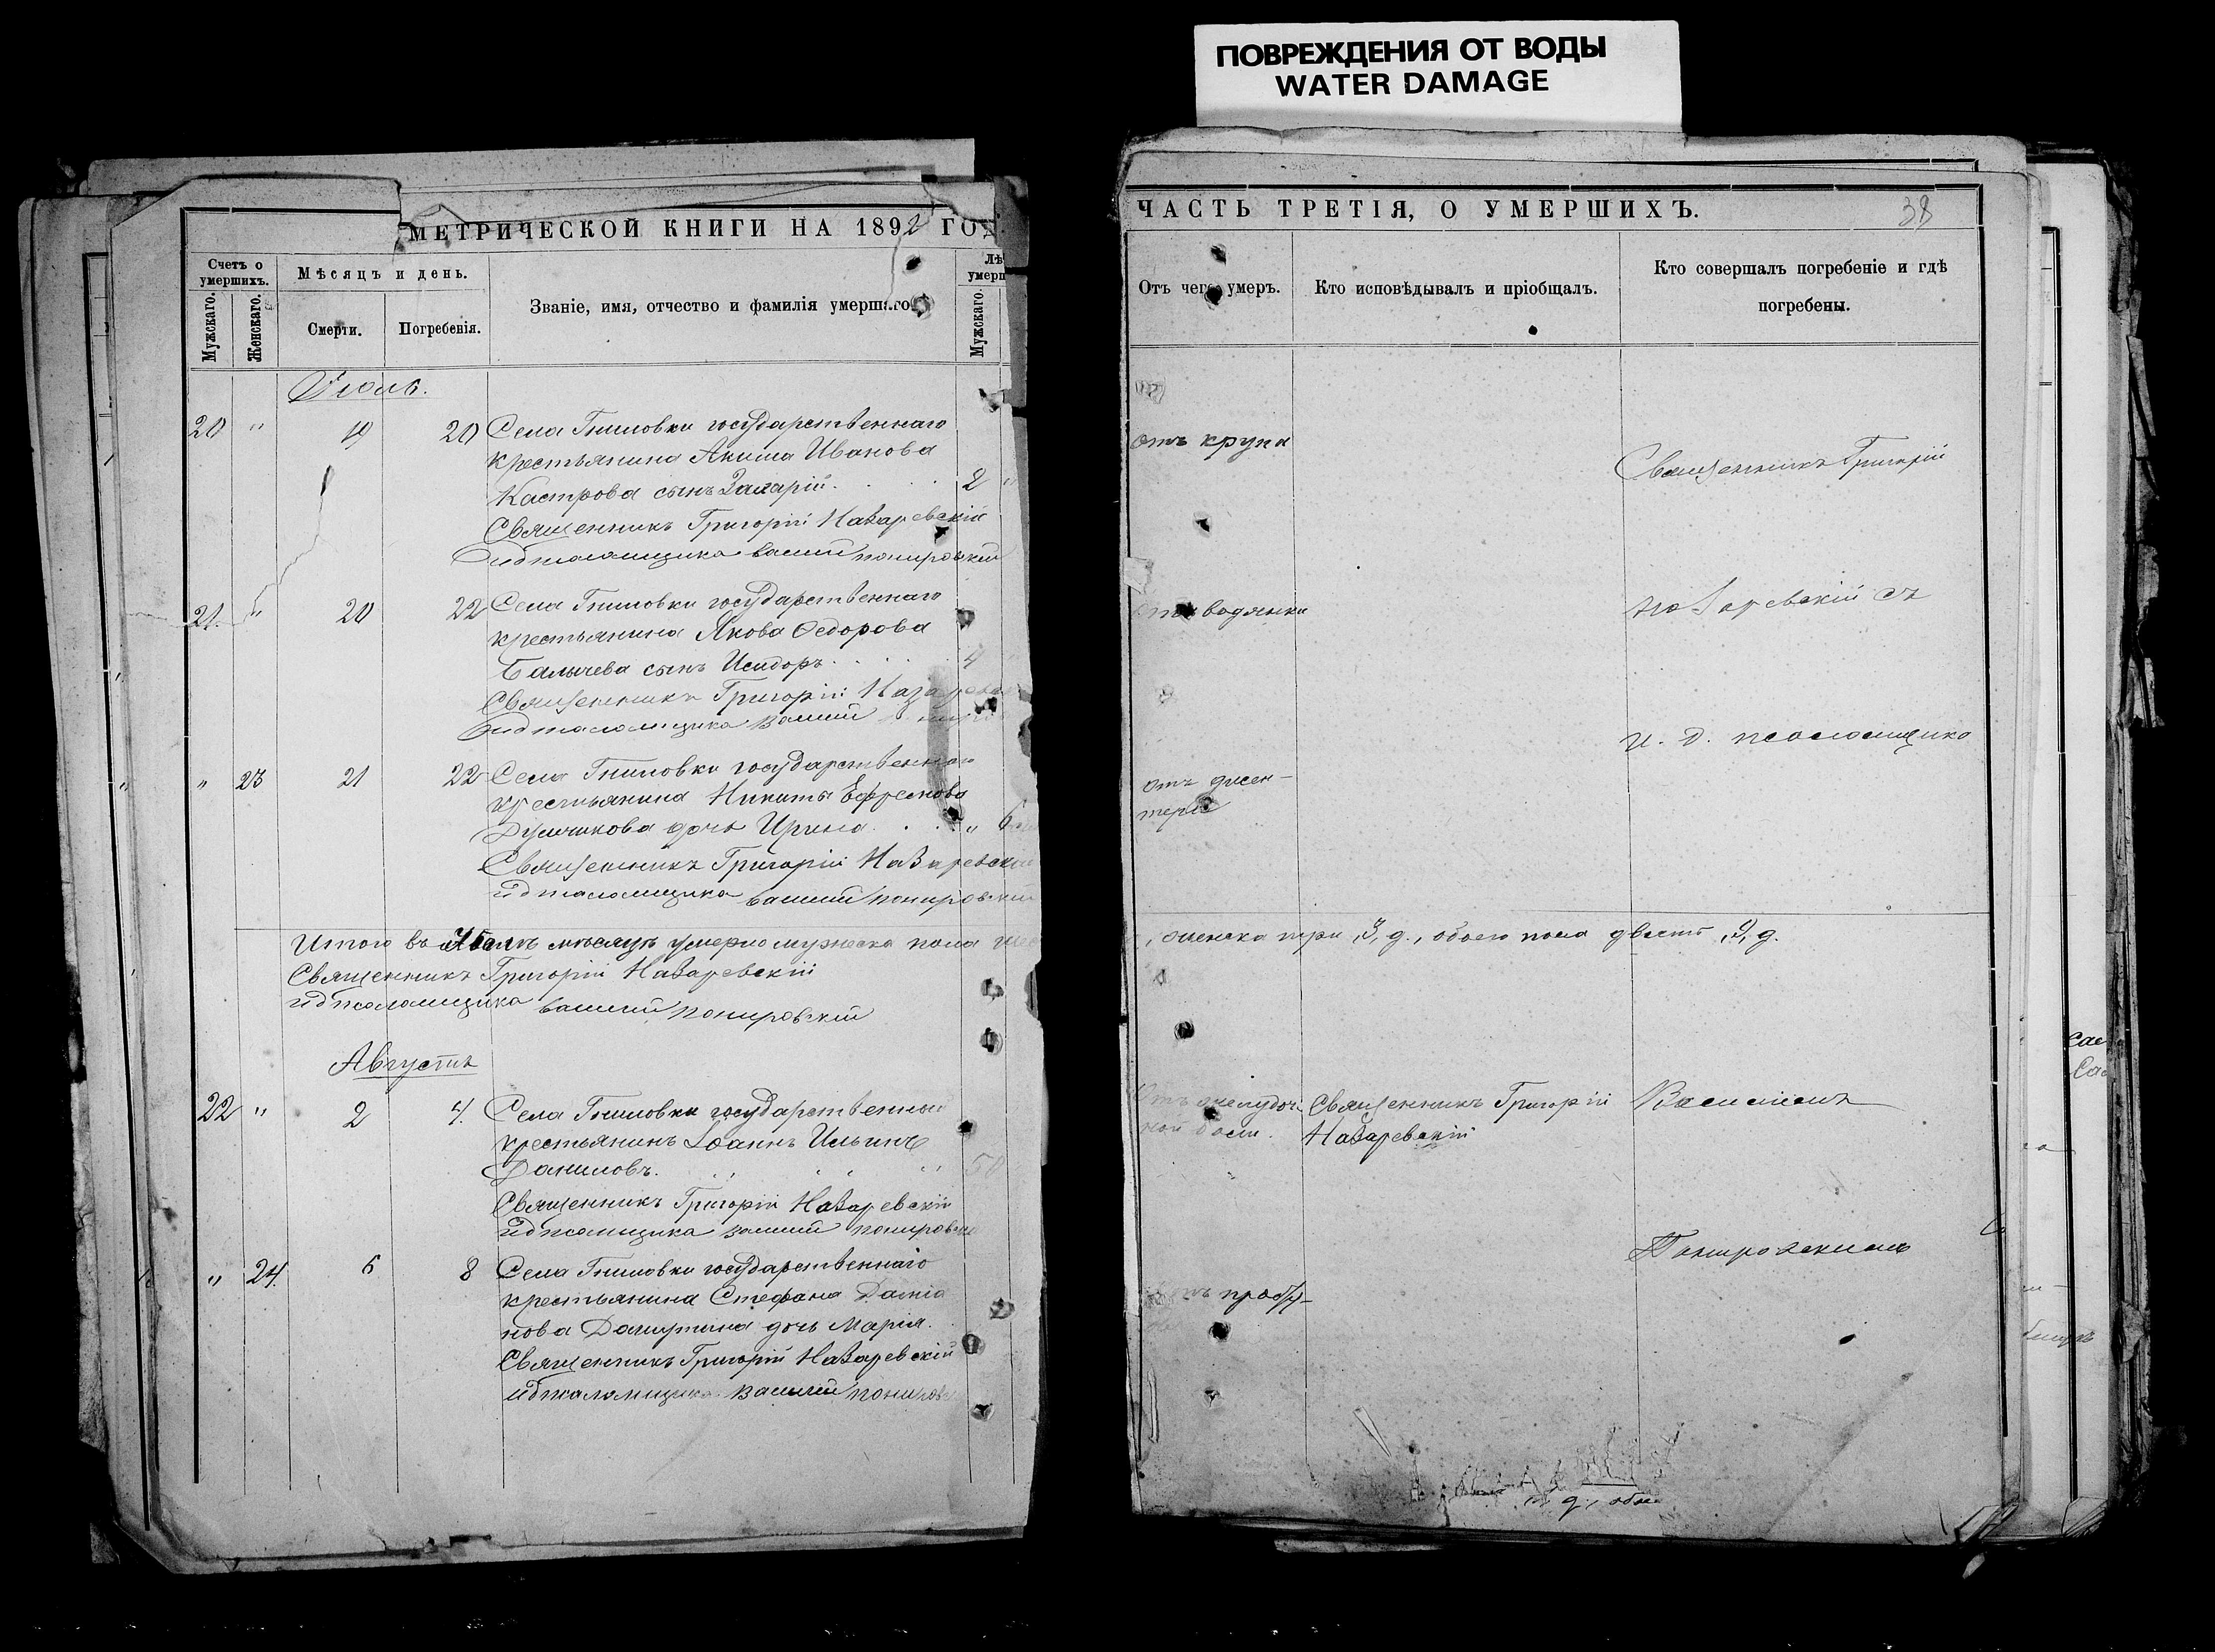 ПОВРЕЖДЕНИЯ ОТ ВОДЫ
WATER DAMAGE
МЕТРИЧЕСКОЙ КНИГИ НА 1892 ГО
Счетъ о умершихъ.
Мѣсяцъ и день.
Званіе, имя, отчество и фамилія умершаго.
Лѣ
умерш
Мужскаго.
Женскаго.
Смерти.
Погребенія.
Мужскаго.
Іюль.
20 " 19 20 Села Гниловки государственнаго
крестьянина Акима Иванова
Кастрова сынъ Захарій. 2
Священникъ Григорій Назаревскій
и д псаломщика Василий Понировский
21. " 20 22 Села Гниловки государственнаго
крестьянина Якова Ѳедорова
Балычева сынъ Исидоръ. 4
Священникъ Григорій
и д псаломщика Василий
" 23 21 22 Села Гниловки
крестьянина Никиты Ефремова
дочь Ирина. " 6
Священникъ Григорій Назаревскій
и д псаломщика Василий Понировский
Итого въ мѣсяцѣ умерло мужеска пола
Священникъ Григорій Назаревскій
и д псаломщика Василий Понировский
Августъ
22 " 2 4. Села Гниловки государственный
крестьянинъ Іоаннъ Ильинъ
Даниловъ. 50
Священникъ Григорій Назаревскій
и д псаломщика Василий
" 24. 6 8 Села Гниловки государственнаго
крестьянина Стефана Даміа
нова дочь Марія.
Священникъ Григорій Назаревскій
и д псаломщика Василий
ЧАСТЬ ТРЕТІЯ, О УМЕРШИХЪ.
38
Отъ чего умеръ.
Кто исповѣдывалъ и пріобщалъ.
Кто совершалъ погребеніе и гдѣ
погребены.
отъ крупа
Священникъ Григорій
отъ водянки
Назаревскій съ
и. д. псаломщика
отъ дисен-
теріи
, женска три ,3, д., обоего пола ,9, д.
Отъ желудоч-
ной боли.
Священникъ Григорій
Назаревскій
Василіемъ
Понировскимъ